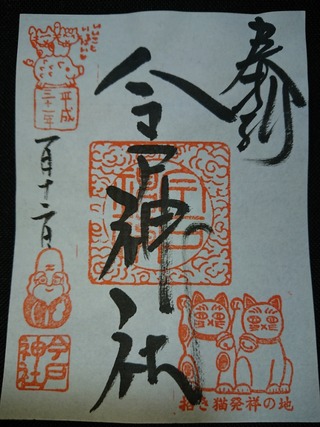 奉拝
今戸神社
平成
三十一年
一月十二日
今戸
神社
招き猫発祥の地